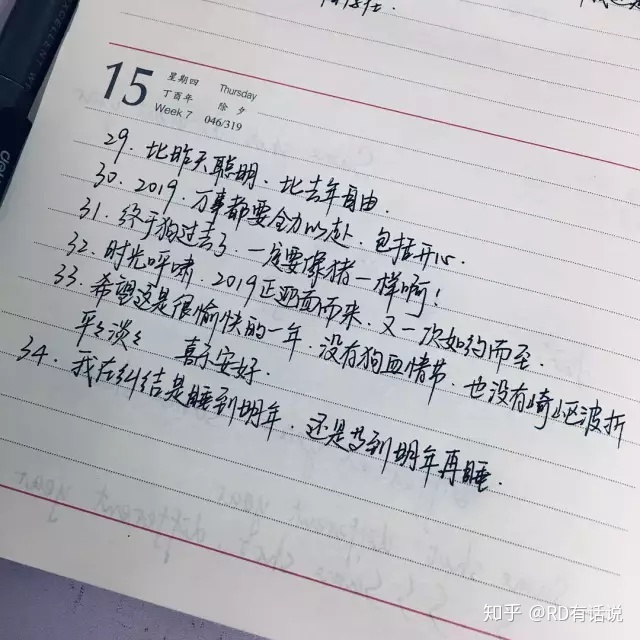 EXCELLENT W
deli
15 星期四 Thursday
丁酉年 除夕
Week 7 046/319
29. 比昨天聪明、比去年自由.
30. 2019. 万事都要全力以赴. 包括开心.
31. 终于狗过去了. 一定要像猪一样啊!
32. 时光呼啸. 2019正迎面而来. 又一次如约而至.
33. 希望这是很愉快的一年. 没有狗血情节. 也没有崎岖波折
平々淡々 喜乐安好.
34. 我在纠结是睡到明年. 还是等到明年再睡.
知乎 @RD有话说